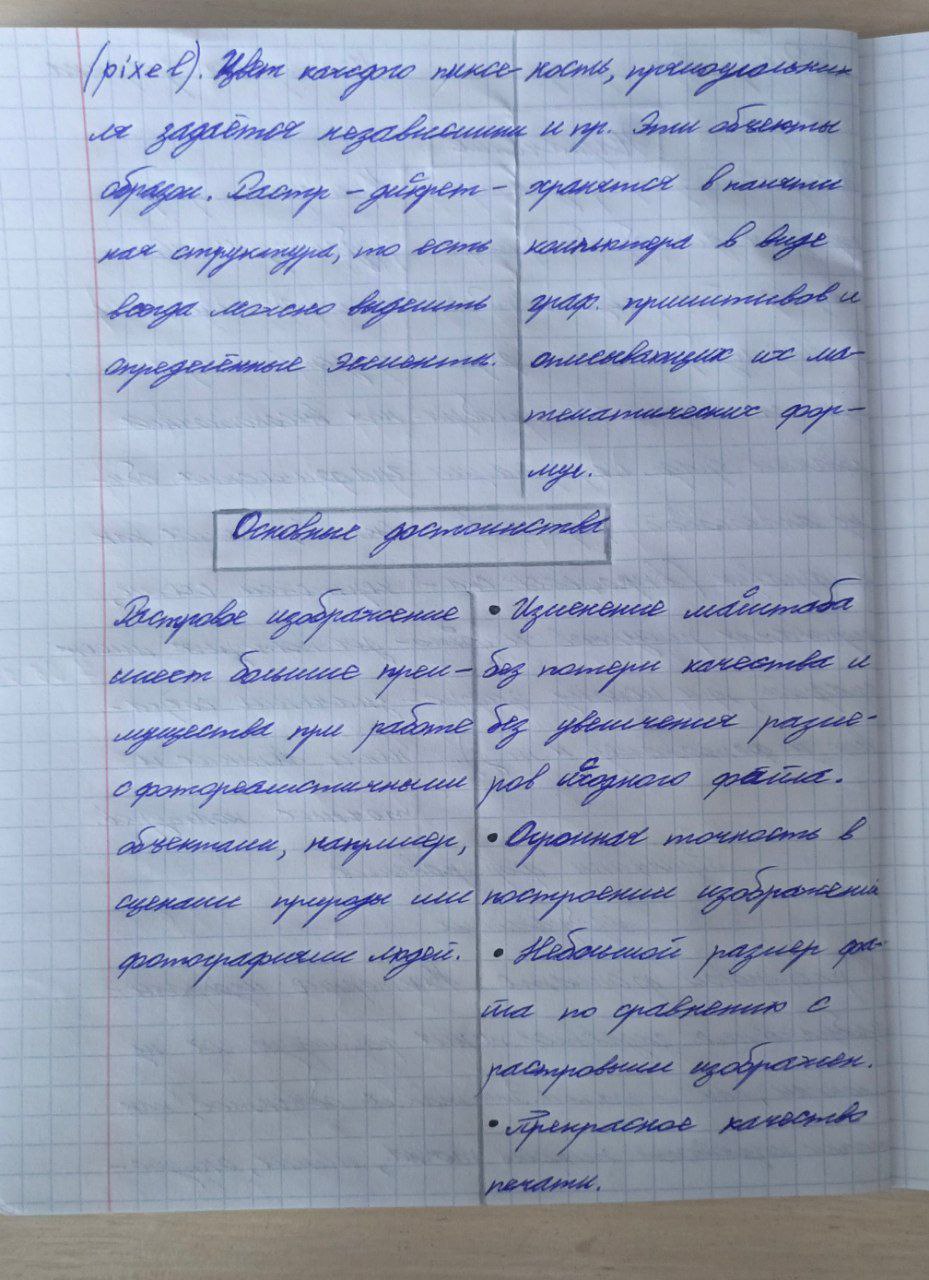 (pixel). Цвет каждого пиксе-
ля задаётся независимым
образом. Растр – дискрет-
ная структура, то есть
всегда можно выделить
определённые элементы.
ность, прямоугольник
и пр. Эти объекты
хранятся в памяти
компьютера в виде
граф. примитивов и
описывающих их ма-
тематических фор-
мул.
Основные достоинства
Растровое изображение
имеет большие преи-
мущества при работе
с фотореалистичными
объектами, например,
сценами природы или
фотографиями людей.
• Изменение масштаба
без потери качества и
без увеличения разме-
ров исходного файла.
• Огромная точность в
построении изображений
• Небольшой размер фай-
ла по сравнению с
растровыми изображен.
• Прекрасное качество
печати.